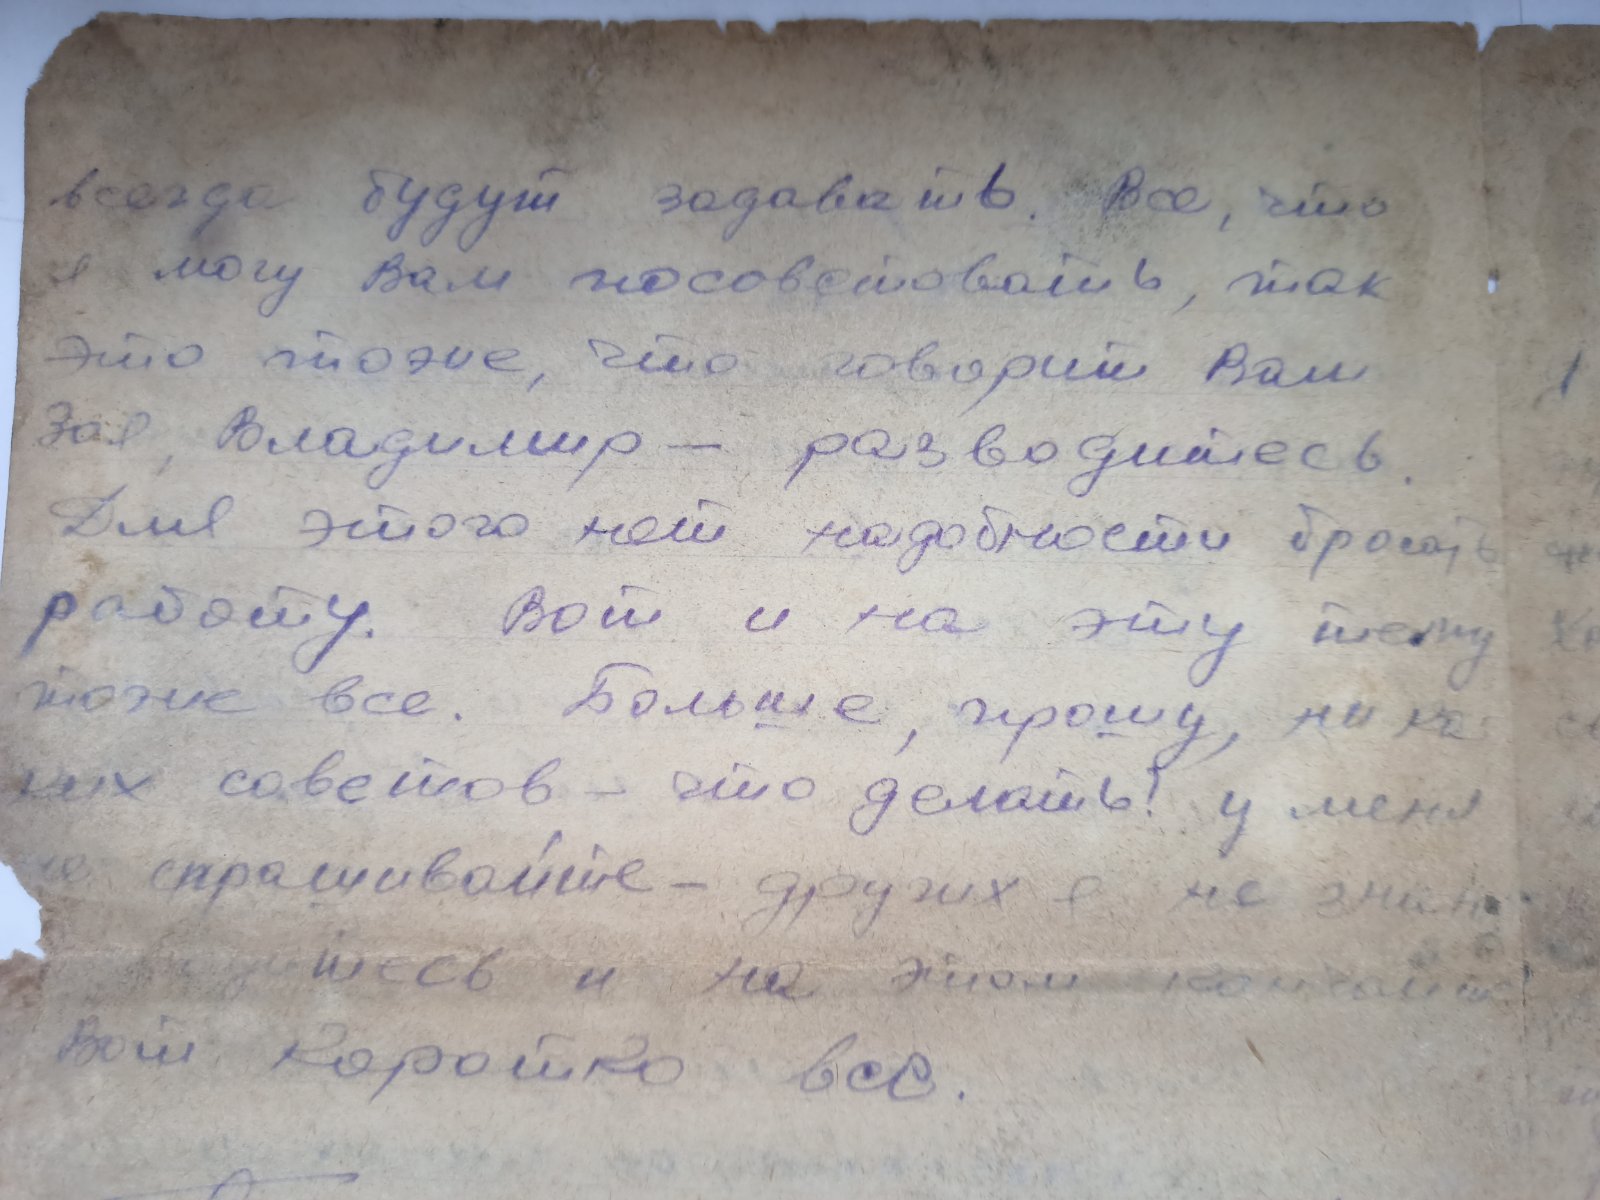 всегда будут задавать. Все, что
я могу Вам посоветовать, так
это тоже, что говорит Вам
Зоя, Владимир – разводитесь.
Для этого нет надобности бросать
работу. Вот и на эту тему
тоже все. Больше, прошу, ника
ких советов – что делать! у меня
не спрашивайте – других я не знаю
и на этом кончайте
Вот коротко все.